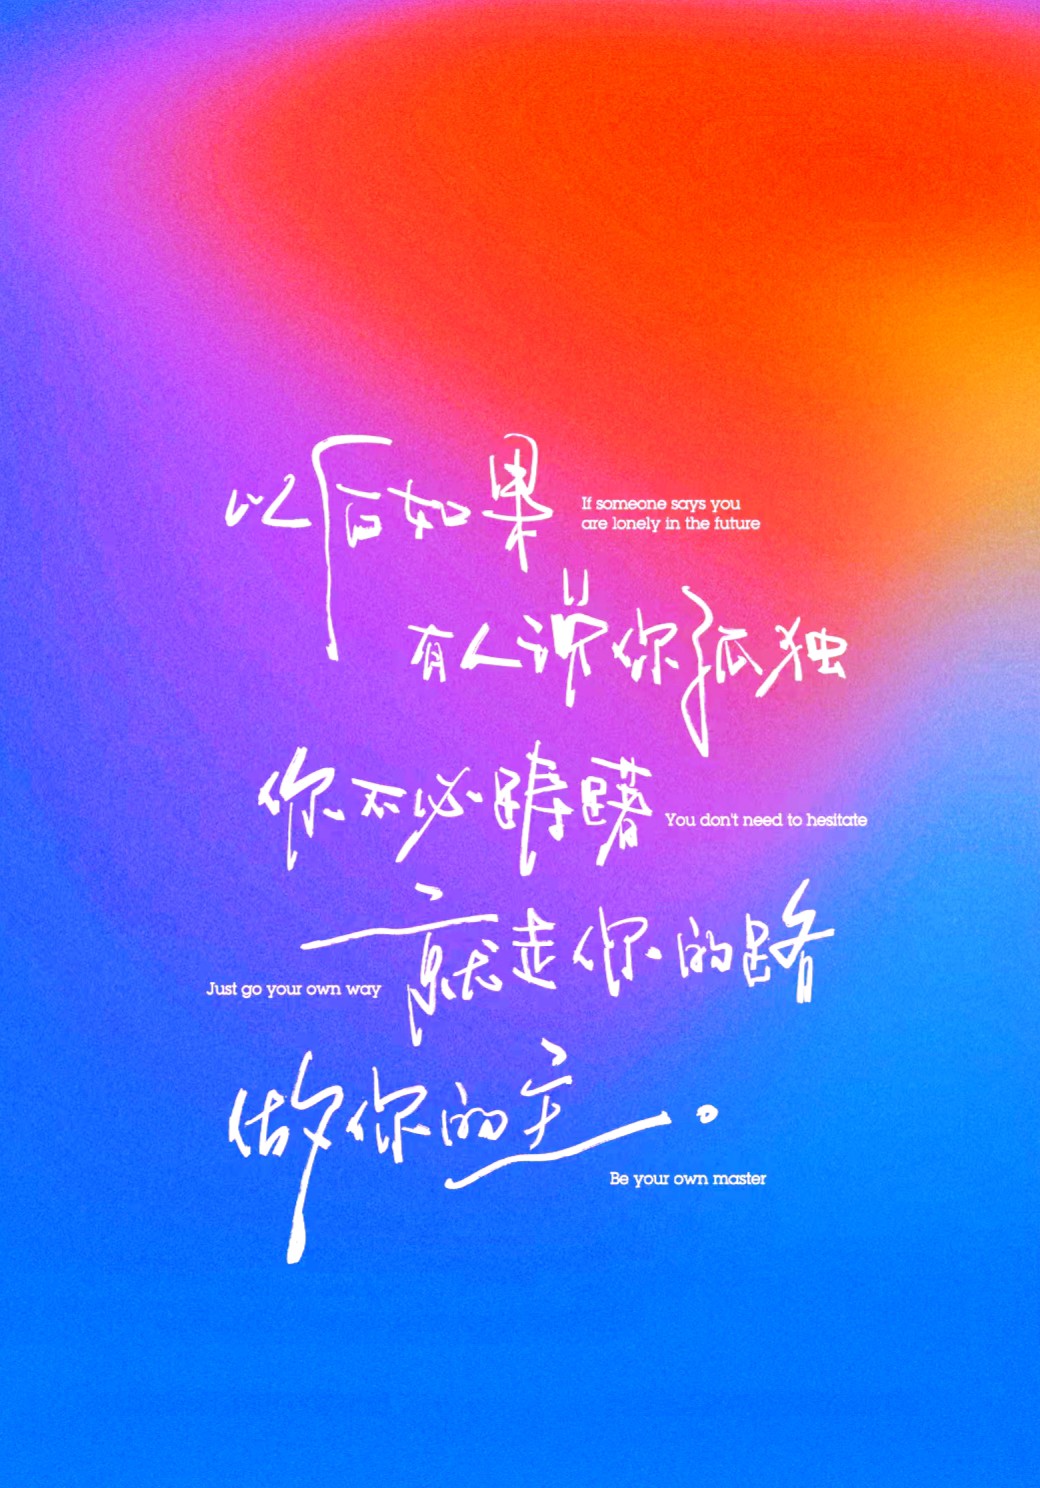 以后如果
If someone says you
are lonely in the future
有人说你孤独
你不必踌躇
You don't need to hesitate
就走你的路
Just go your own way
做你的主。
Be your own master